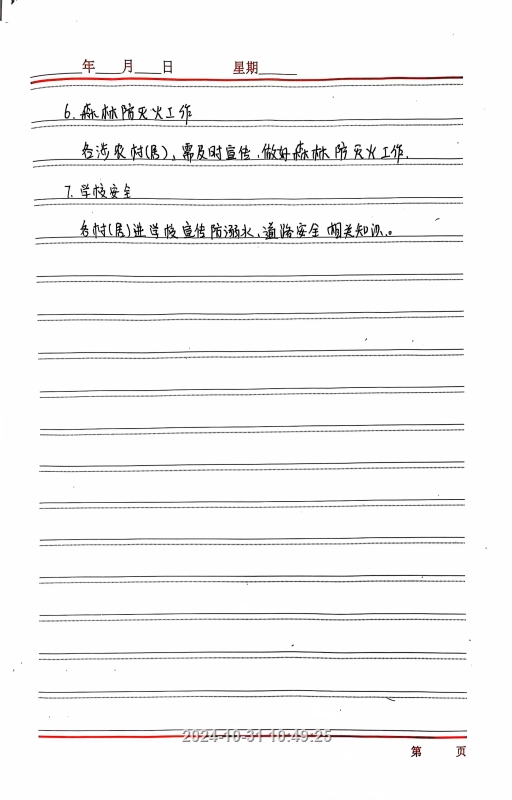 年 月 日 星期
6.森林防灭火工作
各涉农村(居),需及时宣传,做好森林防灭火工作.
7.学校安全
各村(居)进学校宣传防溺水、道路安全相关知识。
2024-10-31 10:49:25
第 页